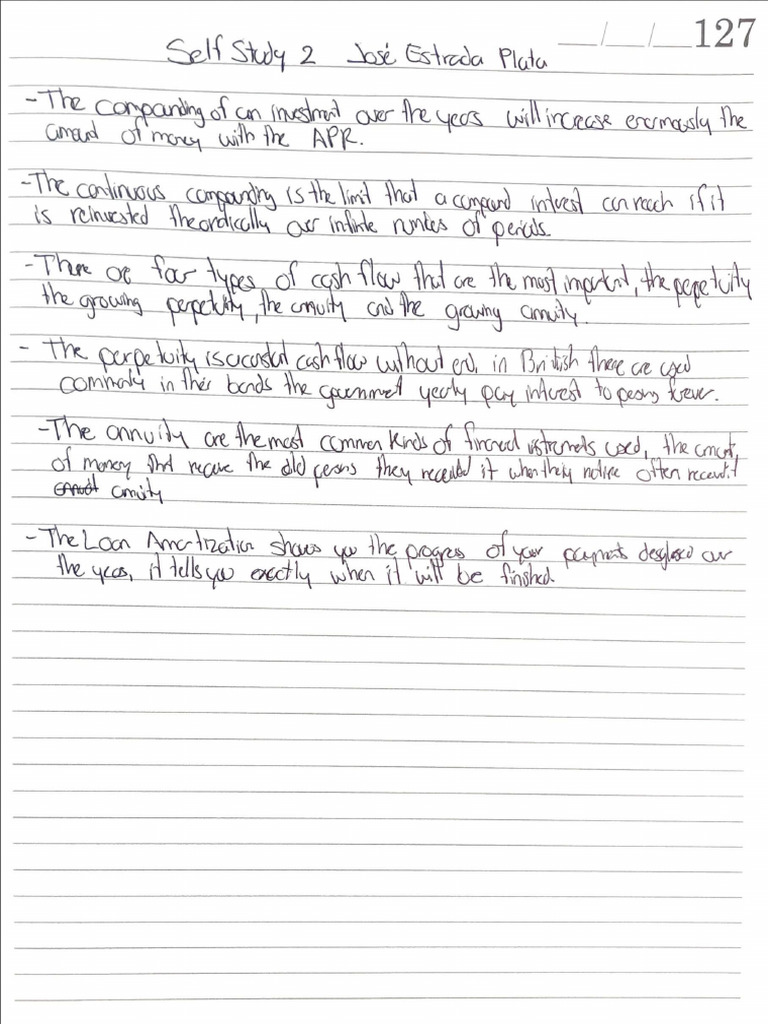 __/__/__127
Self Study 2 José Estrada Plata
- The compounding of an investment over the years will increase enormously the
amount of money with the APR.
- The continuous compounding is the limit that a compound interest can reach if it
is reinvested theoretically over infinite number of periods.
- There are four types of cash flow that are the most important, the perpetuity
the growing perpetuity, the annuity and the growing annuity.
- The perpetuity is a constant cash flow without end, in British there are used
commonly in their bonds the government yearly pay interest to persons forever.
- The annuity are the most common kinds of financial instruments used, the amount
of money that receive the old persons they received it when they retire often recent it
annuity
- The Loan Amortization shows you the progress of your payments desglosed over
the years, it tells you exactly when it will be finished.